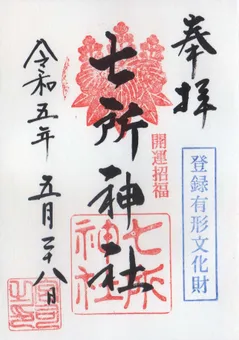 奉拝
登録有形文化財
開運招福
七所神社
七所神社
令和五年 五月二十八日